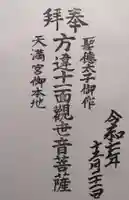 奉拝
聖徳太子御作
方違十一面觀世音菩薩
天満宮御本地
令和七年
十二月二十一日